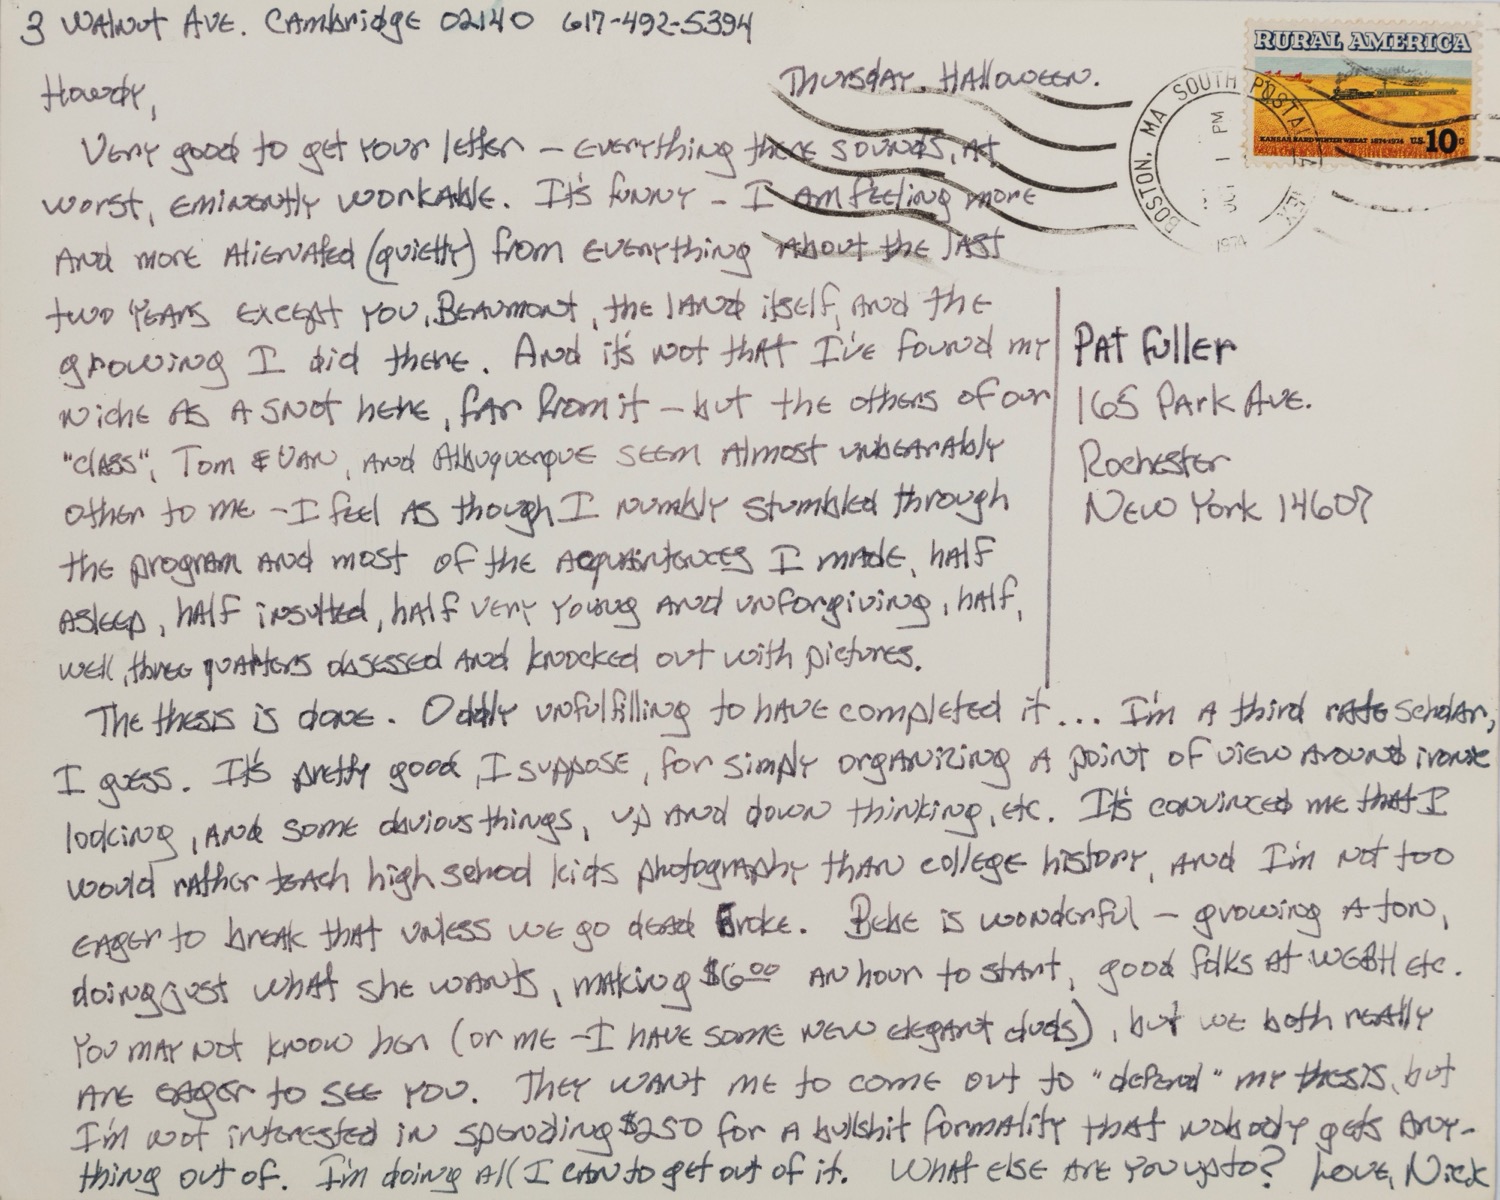 3 Walnut Ave. Cambridge 02140 617-492-5394
RURAL AMERICA
KANSAS HARD WINTER WHEAT 1874-1974 U.S. 10c
BOSTON, MA SOUTH POSTAL
PM
1
1974
Thursday. Halloween.
Howdy,
Very good to get your letter – everything there sounds, at
worst, eminently workable. It's funny – I am feeling more
and more alienated (quietly) from everything about the last
two years except you, Beaumont, the land itself, and the
growing I did there. And it's not that I've found my
niche as a snot here, far from it – but the others of our
"class", Tom & Van, and Albuquerque seem almost unbearably
other to me – I feel as though I numbly stumbled through
the program and most of the acquaintences I made, half
asleep, half insulted, half very young and unforgiving, half,
well, three quarters obsessed and knocked out with pictures.
Pat Fuller
165 Park Ave.
Rochester
New York 14607
The thesis is done. Oddly unfulfilling to have completed it... I'm a third rate scholar,
I guess. It's pretty good, I suppose, for simply organizing a point of view around
looking, and some obvious things, up and down thinking, etc. It's convinced me that I
would rather teach high school kids photography than college history, and I'm not too
eager to break that unless we go dead broke. Bebe is wonderful – growing a ton,
doing just what she wants, making $6.00 an hour to start, good folks at WGBH etc.
You may not know her (or me – I have some new elegant duds), but we both really
are eager to see you. They want me to come out to "defend" my thesis, but
I'm not interested in spending $250 for a bullshit formality that nobody gets any-
thing out of. I'm doing all I can to get out of it. What else are you up to? Love, Nick